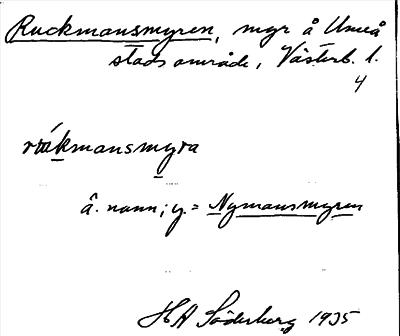 Ruckmansmyren, myr å Umeå
stads område, Västerb. l.
4
mansmyra
å. namn; y. = Nymansmyren
HA Söderberg 1935